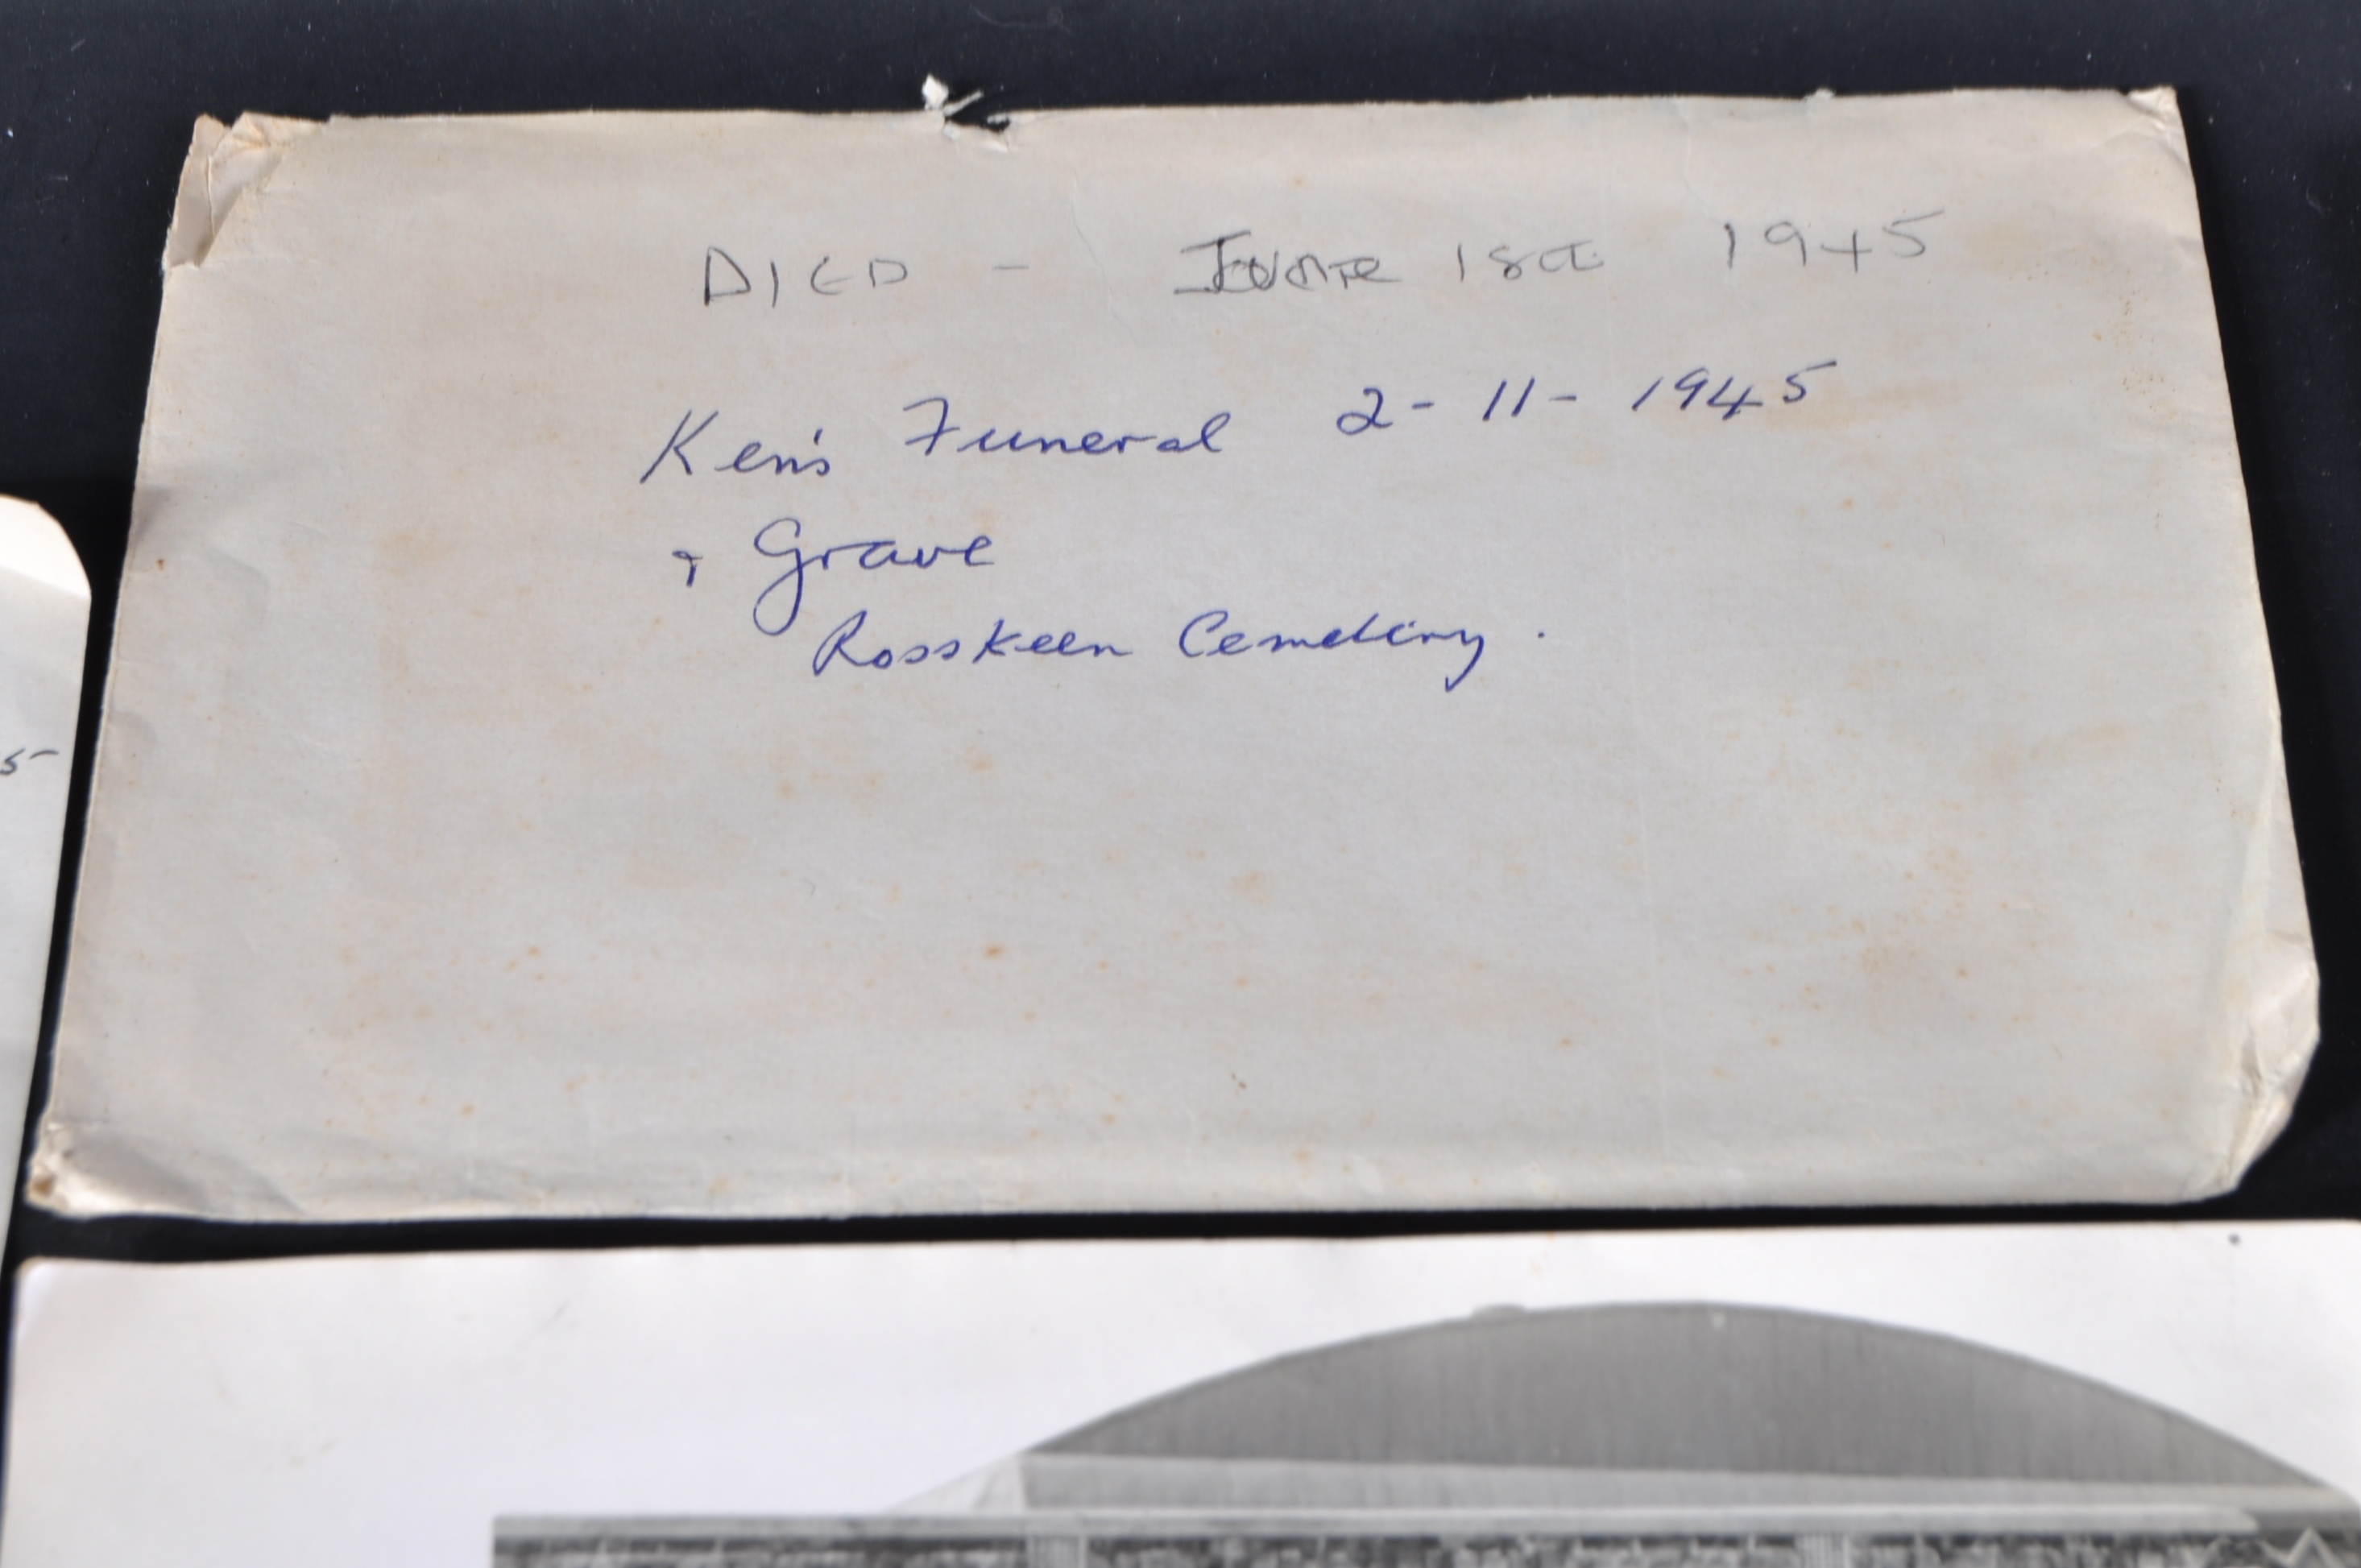 DIED - JUNE 1st 1945
Ken's Funeral 2-11-1945
+ Grave
Rosskeen Cemetery.
5-